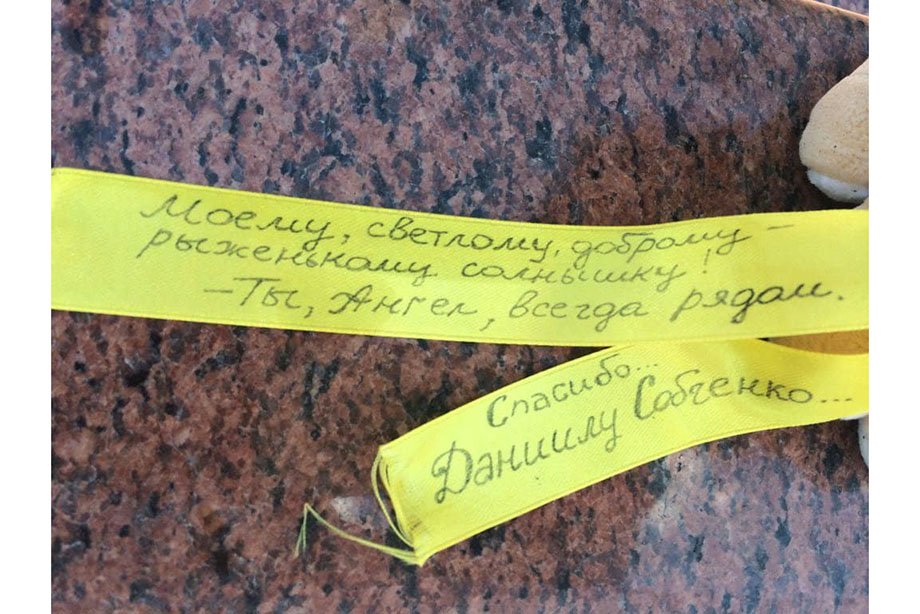 Моему, светлому, доброму –
рыженькому солнышку!
–Ты, Ангел, всегда рядом.
Спасибо...
Даниилу Собченко...